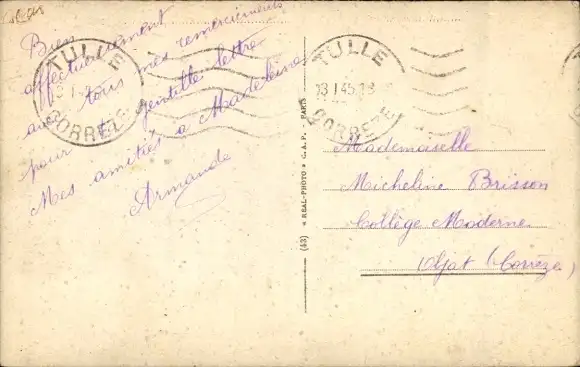 Bien
affectueusement
avec tous mes remerciements
pour gentille lettre
Mes amitiés à Madeleine
Armande
TULLE
CORREZE
TULLE
1 45
CORREZE
(43) « REAL-PHOTO » C. A. P. - PARIS
Mademoiselle
Micheline Brisson
Collège Moderne
Objat (Corrèze)